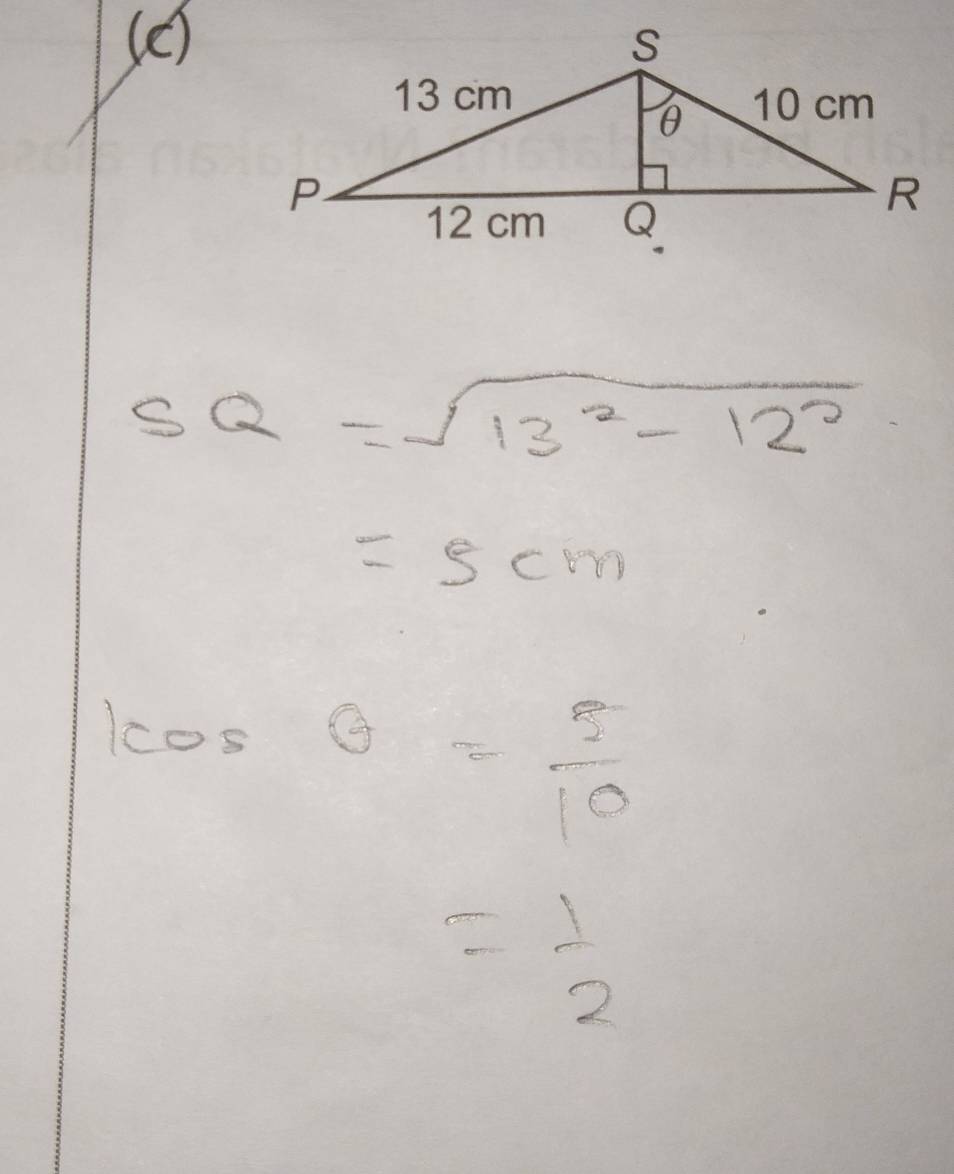 (c)
S
13 cm
θ
10 cm
P
12 cm
Q
R
SQ = √13² - 12²
= 5 cm
kos θ = 5/10
= 1/2